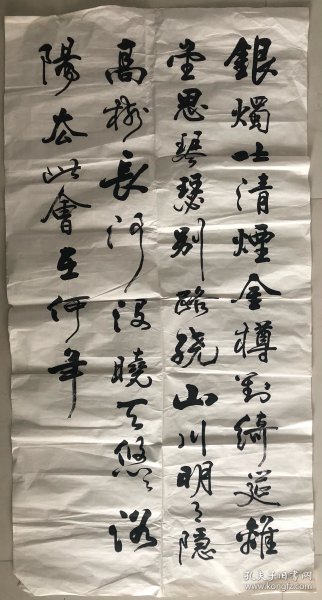 銀燭吐清煙金樽對綺筵離
堂思琴瑟別路繞山川明月隱
高樹長河沒曉天悠々洛
陽去此會在何年
孔夫子旧书网